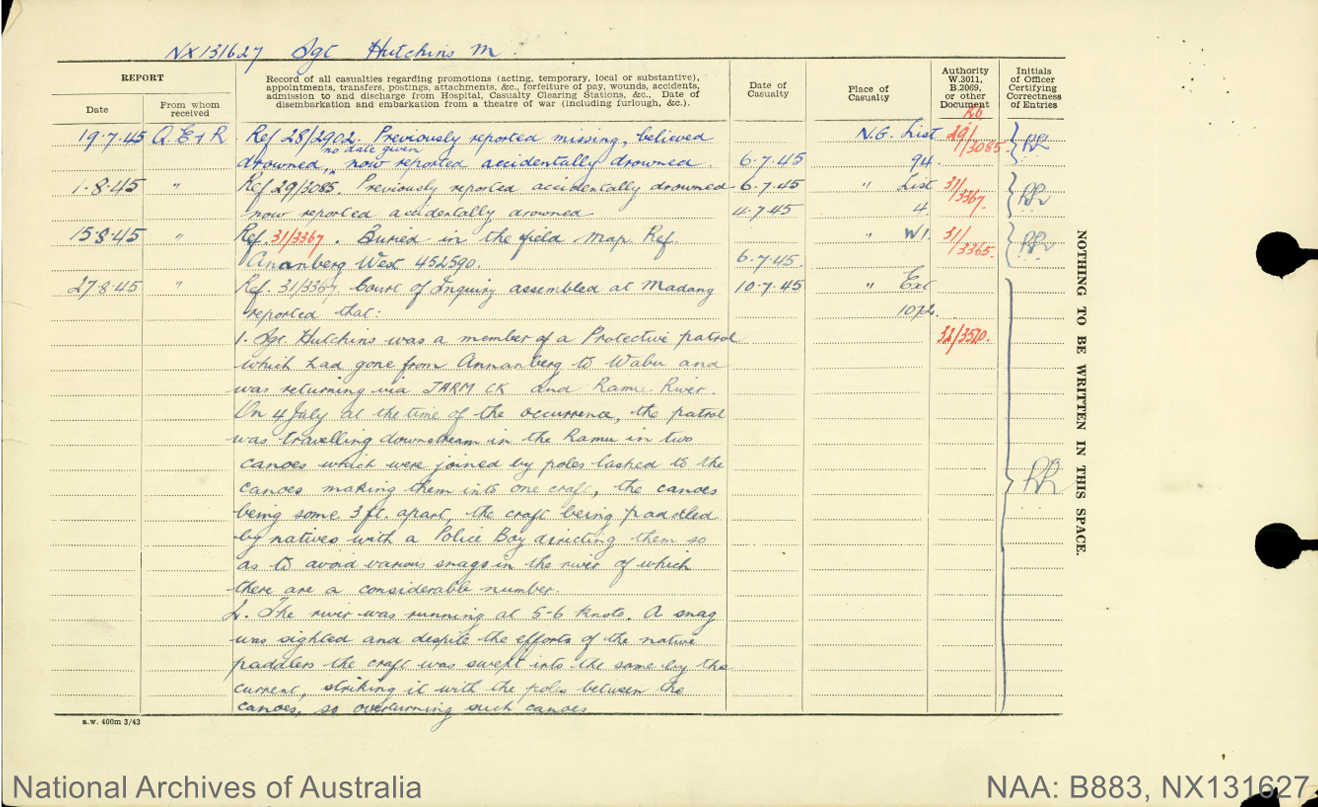 NX131627 Sgt Hutchins M.
REPORT
Date
From whom received
Record of all casualties regarding promotions (acting, temporary, local or substantive),
appointments, transfers, postings, attachments, &c., forfeiture of pay, wounds, accidents,
admission to and discharge from Hospital, Casualty Clearing Stations, &c., Date of
disembarkation and embarkation from a theatre of war (including furlough, &c.).
Date of
Casualty
Place of
Casualty
Authority
W.3011,
B.2069,
or other
Document
Initials
of Officer
Certifying
Correctness
of Entries
19.7.45 Q.E&R Ref 28/2902. Previously reported missing, believed N.G. List 29/3085
no date given
drowned, now reported accidentally drowned. 6.7.45 94.
1.8.45 " Ref 29/3085. Previously reported accidentally drowned 6.7.45 " List 31/3367.
now reported accidentally drowned 4.7.45 4.
15.8.45 " Ref. 31/3367. Buried in the field Map Ref. " W1. 31/3365.
Ananberg West 452590. 6.7.45.
27.8.45 " Ref. 31/3367 Court of Inquiry assembled at Madang 10.7.45 " Ext
reported that: 1072.
1. Sgt. Hutchins was a member of a Protective patrol 32/3510.
which had gone from Annanberg to Wabu and
was returning via JARM CK and Ramu River.
On 4 July at the time of the occurrence, the patrol
was travelling downstream in the Ramu in two
canoes which were joined by poles lashed to the
canoes making them into one craft, the canoes
being some 3 ft. apart, the craft being paddled
by natives with a Police Boy directing them so
as to avoid various snags in the river of which
there are a considerable number.
2. The river was running at 5-6 knots. A snag
was sighted and despite the efforts of the native
paddlers the craft was swept into the same by the
current, striking it with the poles between the
canoes, so overturning such canoes
a.w. 400m 3/43
NOTHING TO BE WRITTEN IN THIS SPACE.
National Archives of Australia
NAA: B883, NX131627